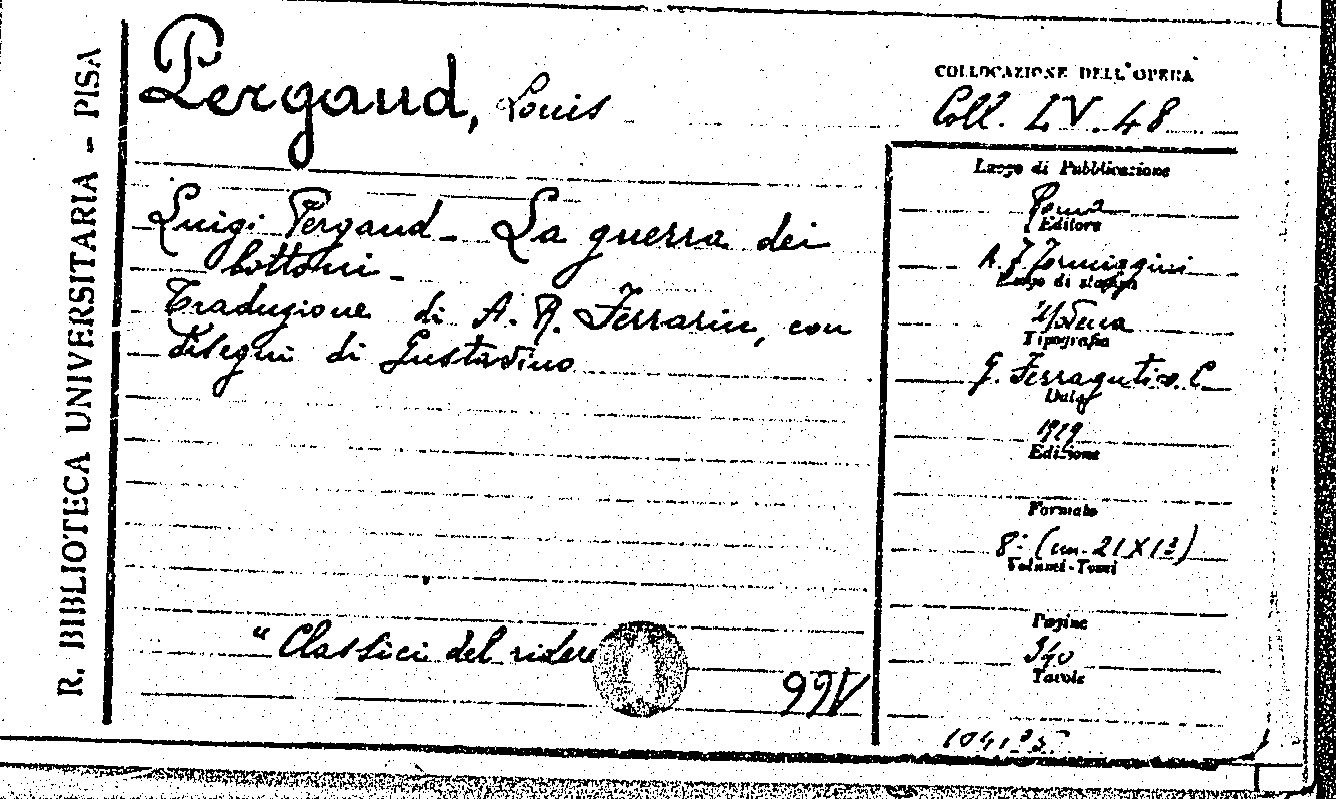 R. BIBLIOTECA UNIVERSITARIA - PISA
Pergaud, Louis
Luigi Pergaud - La guerra dei
bottoni -
Traduzione di A. R. Ferrarin, con
disegni di Gustavino
"Classici del ridere
COLLOCAZIONE DELL'OPERA
Coll. LV. 48
Luogo di Pubblicazione
Roma
Editore
A. F. Formiggini
Luogo di stampa
Modena
Tipografia
G. Ferraguti e C.
Data
1929
Edizione
Formato
8° (cm. 21X13)
Volumi-Tomi
Pagine
340
Tavole